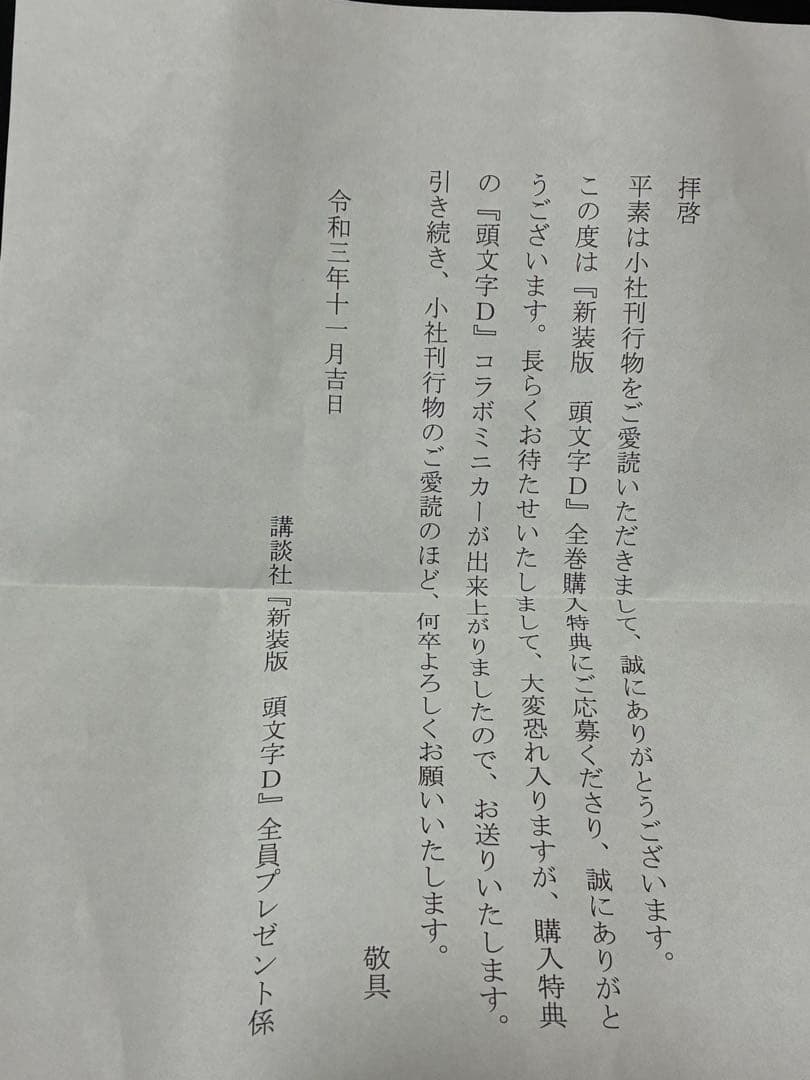 拝啓
平素は小社刊行物をご愛読いただきまして、誠にありがとうございます。
この度は『新装版　頭文字D』全巻購入特典にご応募くださり、誠にありがと
うございます。長らくお待たせいたしまして、大変恐れ入りますが、購入特典
の『頭文字D』コラボミニカーが出来上がりましたので、お送りいたします。
引き続き、小社刊行物のご愛読のほど、何卒よろしくお願いいたします。
敬具
令和三年十一月吉日
講談社『新装版　頭文字D』全員プレゼント係